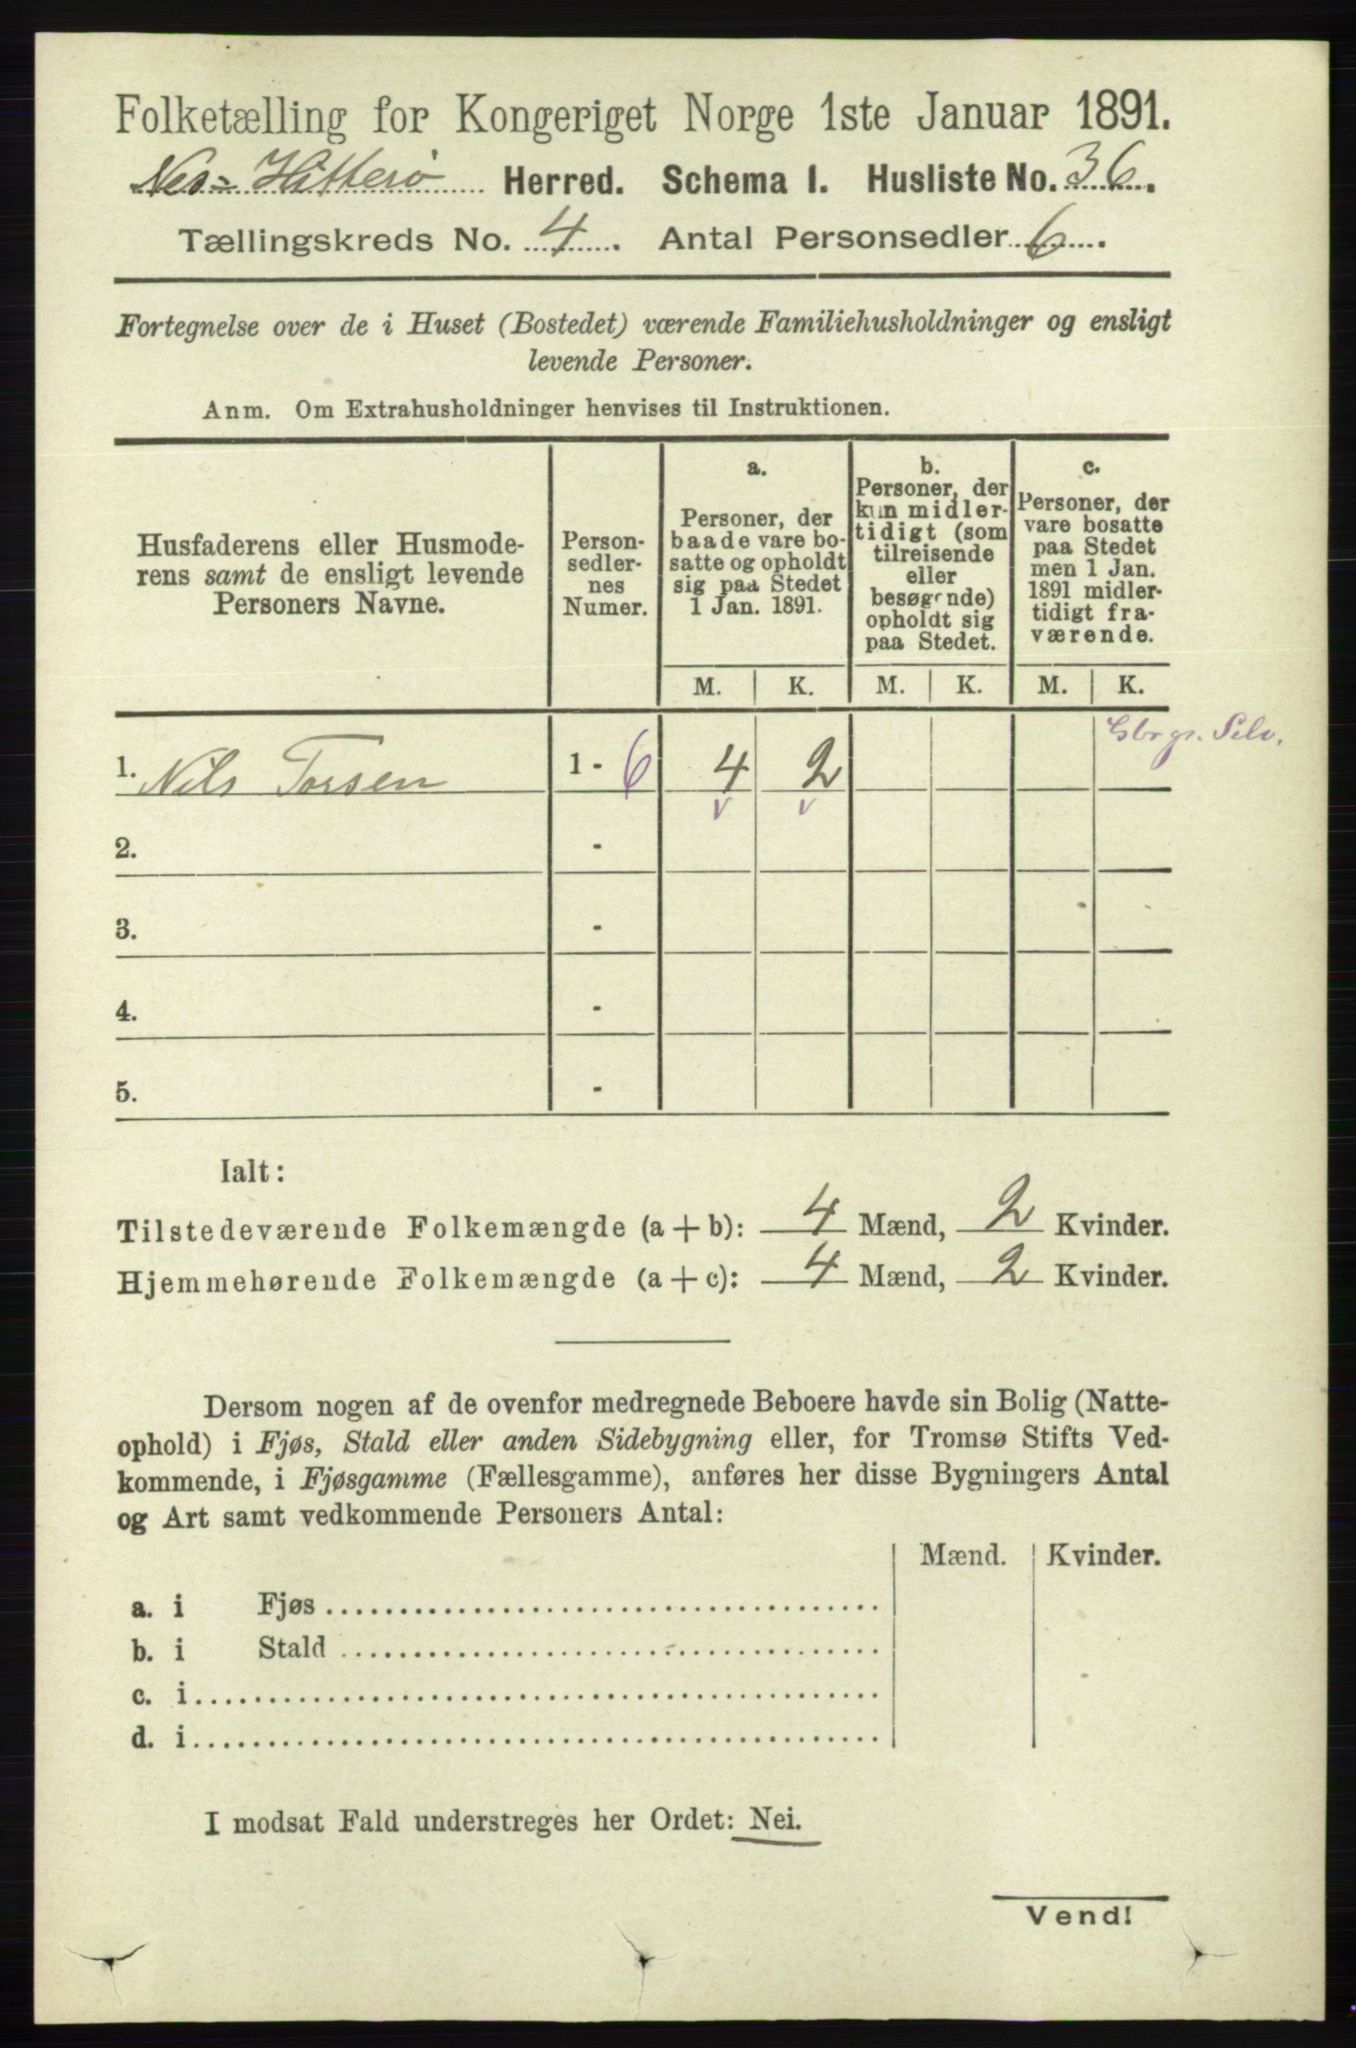 Folketælling for Kongeriget Norge 1ste Januar 1891.
Nes=Hitterø Herred. Schema I. Husliste No. 36.
Tællingskreds No. 4. Antal Personsedler 6.
Fortegnelse over de i Huset (Bostedet) værende Familiehusholdninger og ensligt
levende Personer.
Anm. Om Extrahusholdninger henvises til Instruktionen.
Husfaderens eller Husmode-
rens samt de ensligt levende
Personers Navne.
Person-
sedler-
nes
Numer.
a.
Personer, der
baade vare bo-
satte og opholdt
sig paa Stedet
1 Jan. 1891.
b.
Personer, der
kun midler-
tidigt (som
tilreisende
eller
besøgende)
opholdt sig
paa Stedet.
c.
Personer, der
vare bosatte
paa Stedet
men 1 Jan.
1891 midler-
tidigt fra-
værende.
M. K. M. K. M. K.
1. Nils Torsen 1 - 6 4 2
v v
2. -
3. -
4. -
5. -
Ialt:
Tilstedeværende Folkemængde (a + b): 4 Mænd, 2 Kvinder.
Hjemmehørende Folkemængde (a + c): 4 Mænd, 2 Kvinder.
Dersom nogen af de ovenfor medregnede Beboere havde sin Bolig (Natte-
ophold) i Fjøs, Stald eller anden Sidebygning eller, for Tromsø Stifts Ved-
kommende, i Fjøsgamme (Fællesgamme), anføres her disse Bygningers Antal
og Art samt vedkommende Personers Antal:
Mænd. Kvinder.
a. i Fjøs
b. i Stald
c. i
d. i
I modsat Fald understreges her Ordet: Nei.
Vend!